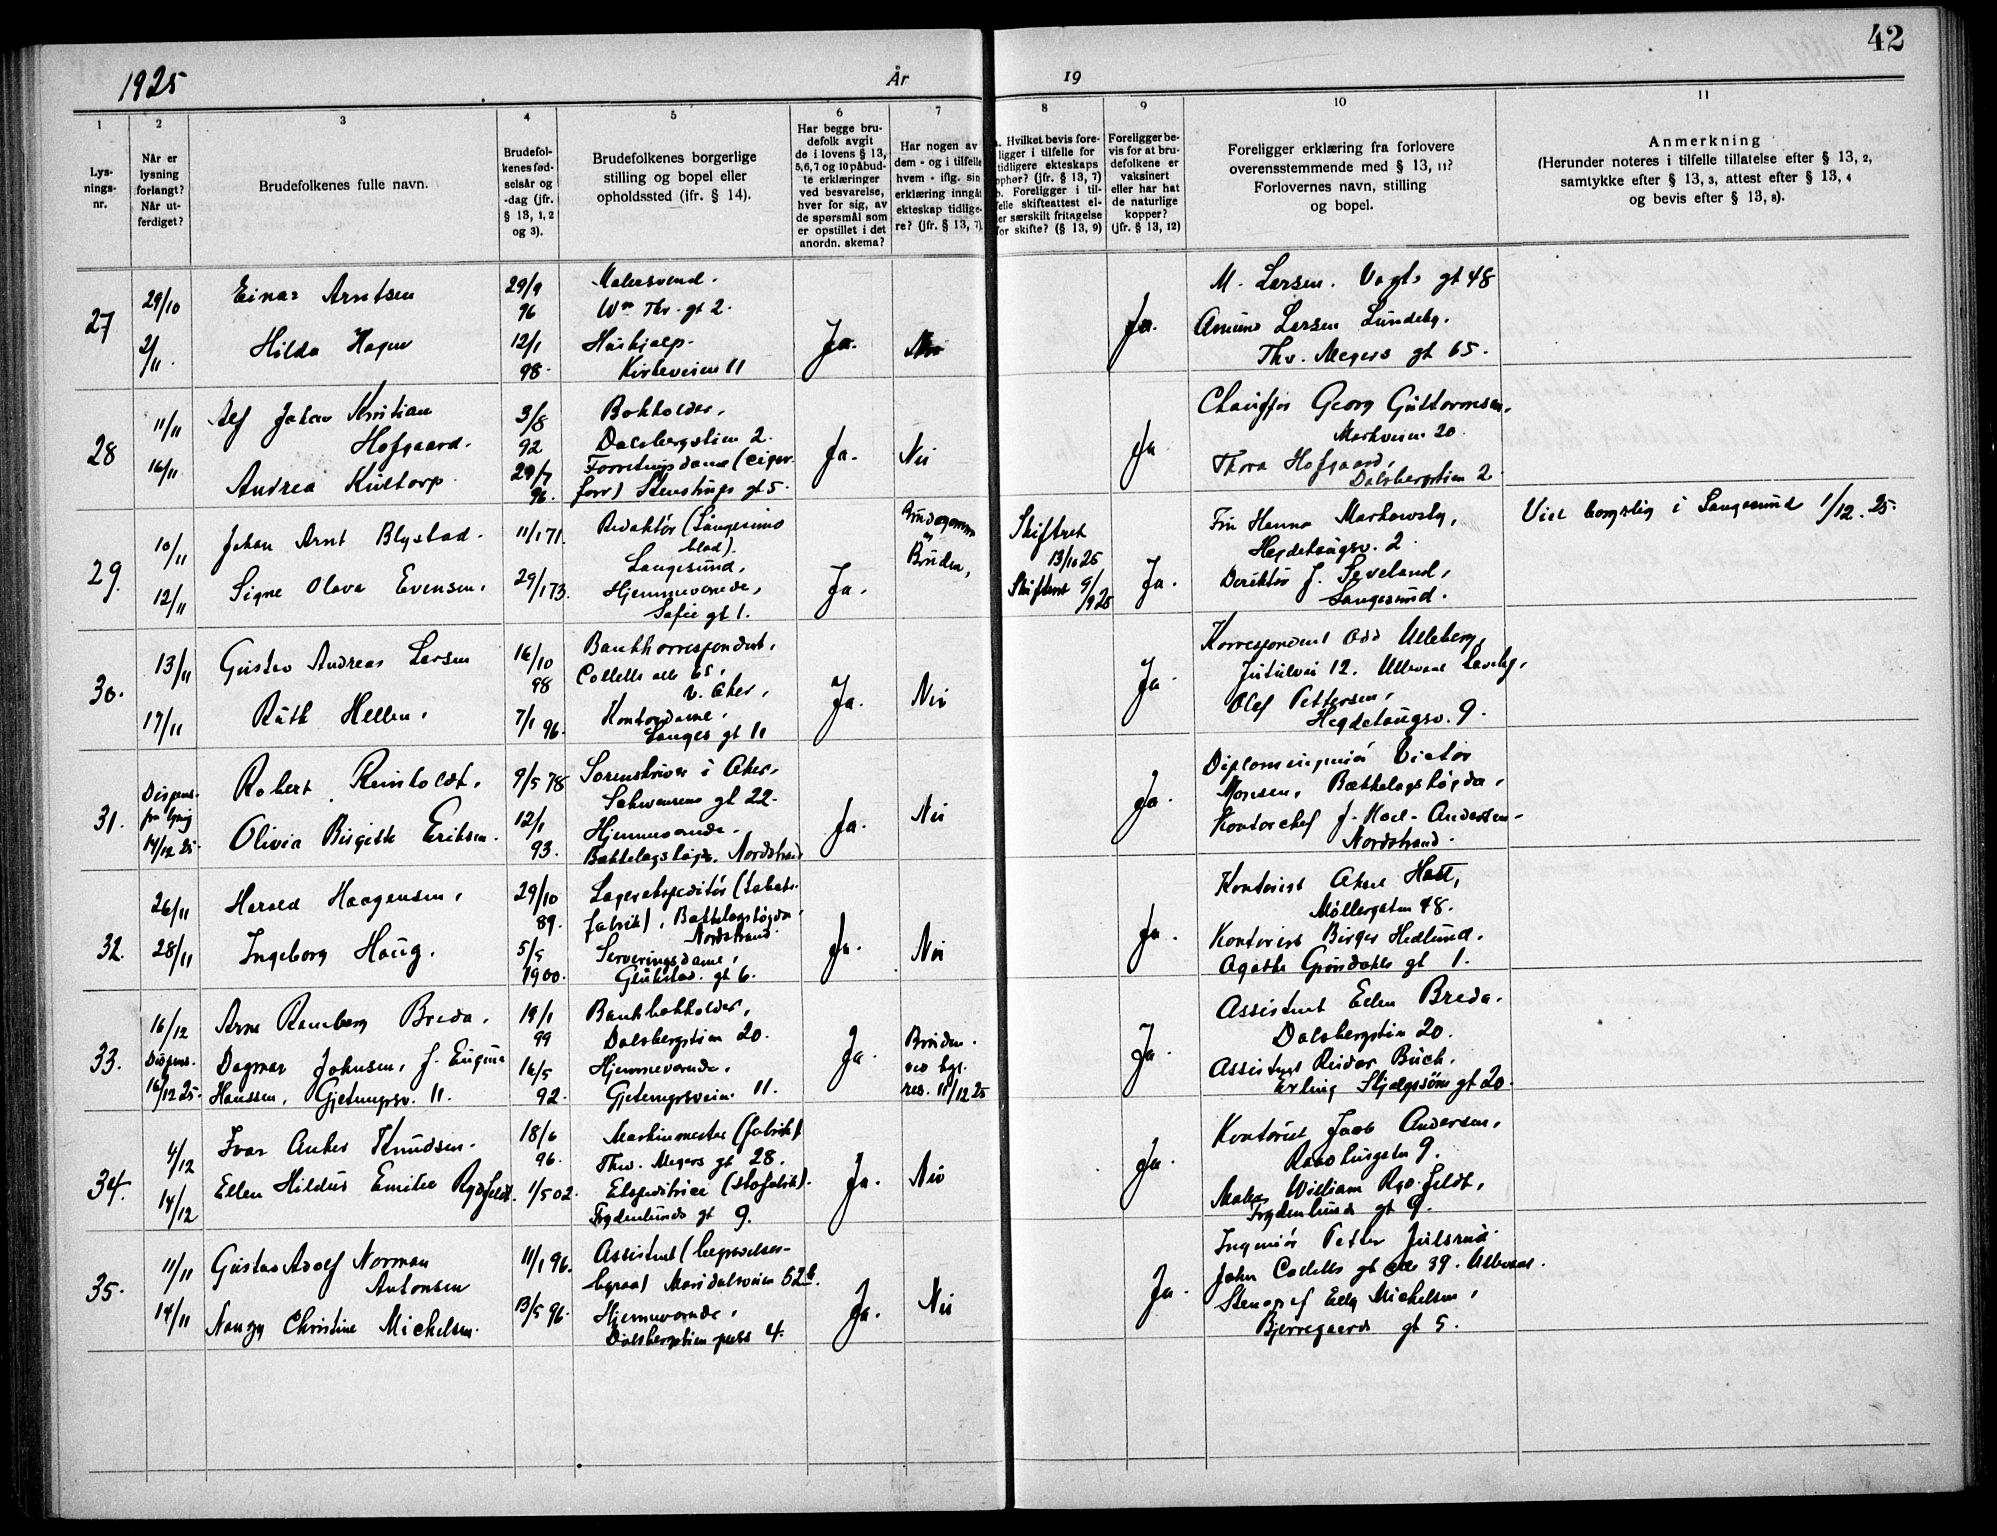 42
1925
År
19
1
Lys-
nings-
nr.
2
Når er
lysning
forlangt?
Når ut-
ferdiget?
3
Brudefolkenes fulle navn.
4
Brudefol-
kenes fød-
selsår og
-dag (jfr.
§ 13, 1, 2
og 3).
5
Brudefolkenes borgerlige
stilling og bopel eller
opholdssted (jfr. § 14).
6
Har begge bru-
defolk avgit
de i lovens § 13,
5,6, 7 og 10 påbud-
te erklæringer
ved besvarelse,
hver for sig, av
de spørsmål som
er opstillet i det
anordn. skema?
7
Har nogen av
dem - og i tilfelle
hvem - iflg. sin
erklæring inngåt
ekteskap tidlige-
re? (jfr. § 13, 7)
8
Hvilket bevis fore-
ligger i tilfelle for
tidligere ekteskaps
ophør? (jfr. § 13, 7)
b. Foreligger i til-
felle skifteattest el-
ler særskilt fritagelse
for skifte? (§ 13, 9)
9
Foreligger be-
vis for at bru-
defolkene er
vaksinert
eller har hat
de naturlige
kopper?
(jfr. § 13, 12)
10
Foreligger erklæring fra forlovere
overensstemmende med § 13, 11?
Forlovernes navn, stilling
og bopel.
11
Anmerkning
(Herunder noteres i tilfelle tillatelse efter § 13, 2,
samtykke efter § 13, 3, attest efter § 13, 4
og bevis efter § 13, 8).
27
29/10
2/11
Einar Arntsen
Hilda Hagen
29/9
96
12/1
98.
Malersvend.
Wm Thr. gt 2.
Hushjelp.
Kirkeveien 11
Ja.
Nei
Ja.
M. Larsen. Vogts gt 48
Amund Larsen Lundeby.
Thv. Meyers gt 65.
28
11/11
16/11
Alf Johan Kristian
Hofgaard.
Andrea Kustorp.
3/8
92
29/7
96.
Bokholder,
Dalsbergstien 2.
Forretningsdame (cigar
forr) Stenstrups gt 5.
Ja.
Nei
Ja
Chauffør Georg Guttormsen,
Markveien 20.
Thora Hofgaard,
Dalsbergstien 2
29.
10/11
12/11
Johan Arnt Blystad.
Signe Olava Evensen.
11/1 71.
29/1 73.
Redaktør (Langesund
blad).
Langesund,
Hjemmeværende,
Sofie gt 1.
Ja.
Brudgommen
og
Bruden,
Skiftret
13/10 25
Skifteret 9/9 25
Ja.
Fru Hanna Markowsky,
Hegdehaugsv. 2.
Direktør J. Seveland,
Langesund.
Viet borgerlig i Langesund 1/12. 25.
30.
13/11
17/11
Gustav Andreas Larsen
Ruth Hellen,
16/10
98
7/1 96.
Bankkorrespondent,
Colletts alle 65,
V. Aker,
Kontordame,
Langes gt 11
Ja.
Nei
Ja
Korrespondent Odd Ulleberg,
Jutulvei 12. Ullevaal Haveby,
Olef Pettersen,
Hegdehaugsv. 9.
31.
Dispens.
fra lysning
14/12 25.
Robert Reinholdt,
Olivia Birgitte Eriksen.
9/5 78
12/1
93.
Sorenskriver i Aker,
Schwensens gt 22.
Hjemmeværende.
Bækkelagshøgda. Nordstrand
Ja.
Nei
Ja.
Diplomingeniør Victor
Monsen, Bækkelagshøgda,
Kontorchef J. Koel-Andersen
Nordstrand.
32.
26/11
28/11
Harald Haagensen,
Ingeborg Haug.
29/10
89.
5/5
1900.
Lagerekspeditør (tobaks.
fabrik), Bækkelagshøgda,
Nordstrand.
Serveringsdame,
Glükstad. gt 6.
Ja.
Nei
Ja.
Kontorist Aksel Hall,
Møllergaten 48.
Kontorist Birger Hedlund.
Agathe Grøndahls gt 1.
33.
16/12
Dispens.
16/12 25.
Arne Ramberg Breda,
Dagmar Johnsen, f. Eugenie
Hanssen, Gjetemyrsv. 11.
19/1
99
16/5
92.
Bankbokholder,
Dalsbergstien 20.
Hjemmeværende,
Gjetemyrsveien 11.
Ja.
Bruden.
ved kgl.
res. 11/12 25
Ja.
Assistent Ellen Breda.
Dalsbergstien 20.
Assistent Reidar Buch.
Erling Skjalgssøns gt 20.
34.
4/12
14/12
Ivar Anker Knudsen.
Ellen Hildur Emilie Rydfeldt.
18/6
96.
1/5 02.
Maskinmester (fabrik)
Thv. Meyers gt 28.
Ekspeditrice (skofabrik).
Frydenlunds gt 9.
Ja.
Nei
Ja.
Kontorist Jacob Andersen,
Raadhusgaten 9.
Maler William Rydfeldt,
Frydenlunds gt 9.
35.
11/11
14/11
Gustav Adolf Norman
Antonsen
Nanzy Christine Michelsen.
11/1 96.
13/5 96.
Assistent (begravelses-
byraa) Maridalsveien 52b.
Hjemmeværende,
Dalsbergstien 4.
Ja.
Nei
Ja.
Ingeniør Petter Julsrud.
John Colletts alle 39. Ullevaal.
Stenograf Elly Michelsen,
Bjerregaards gt 5.